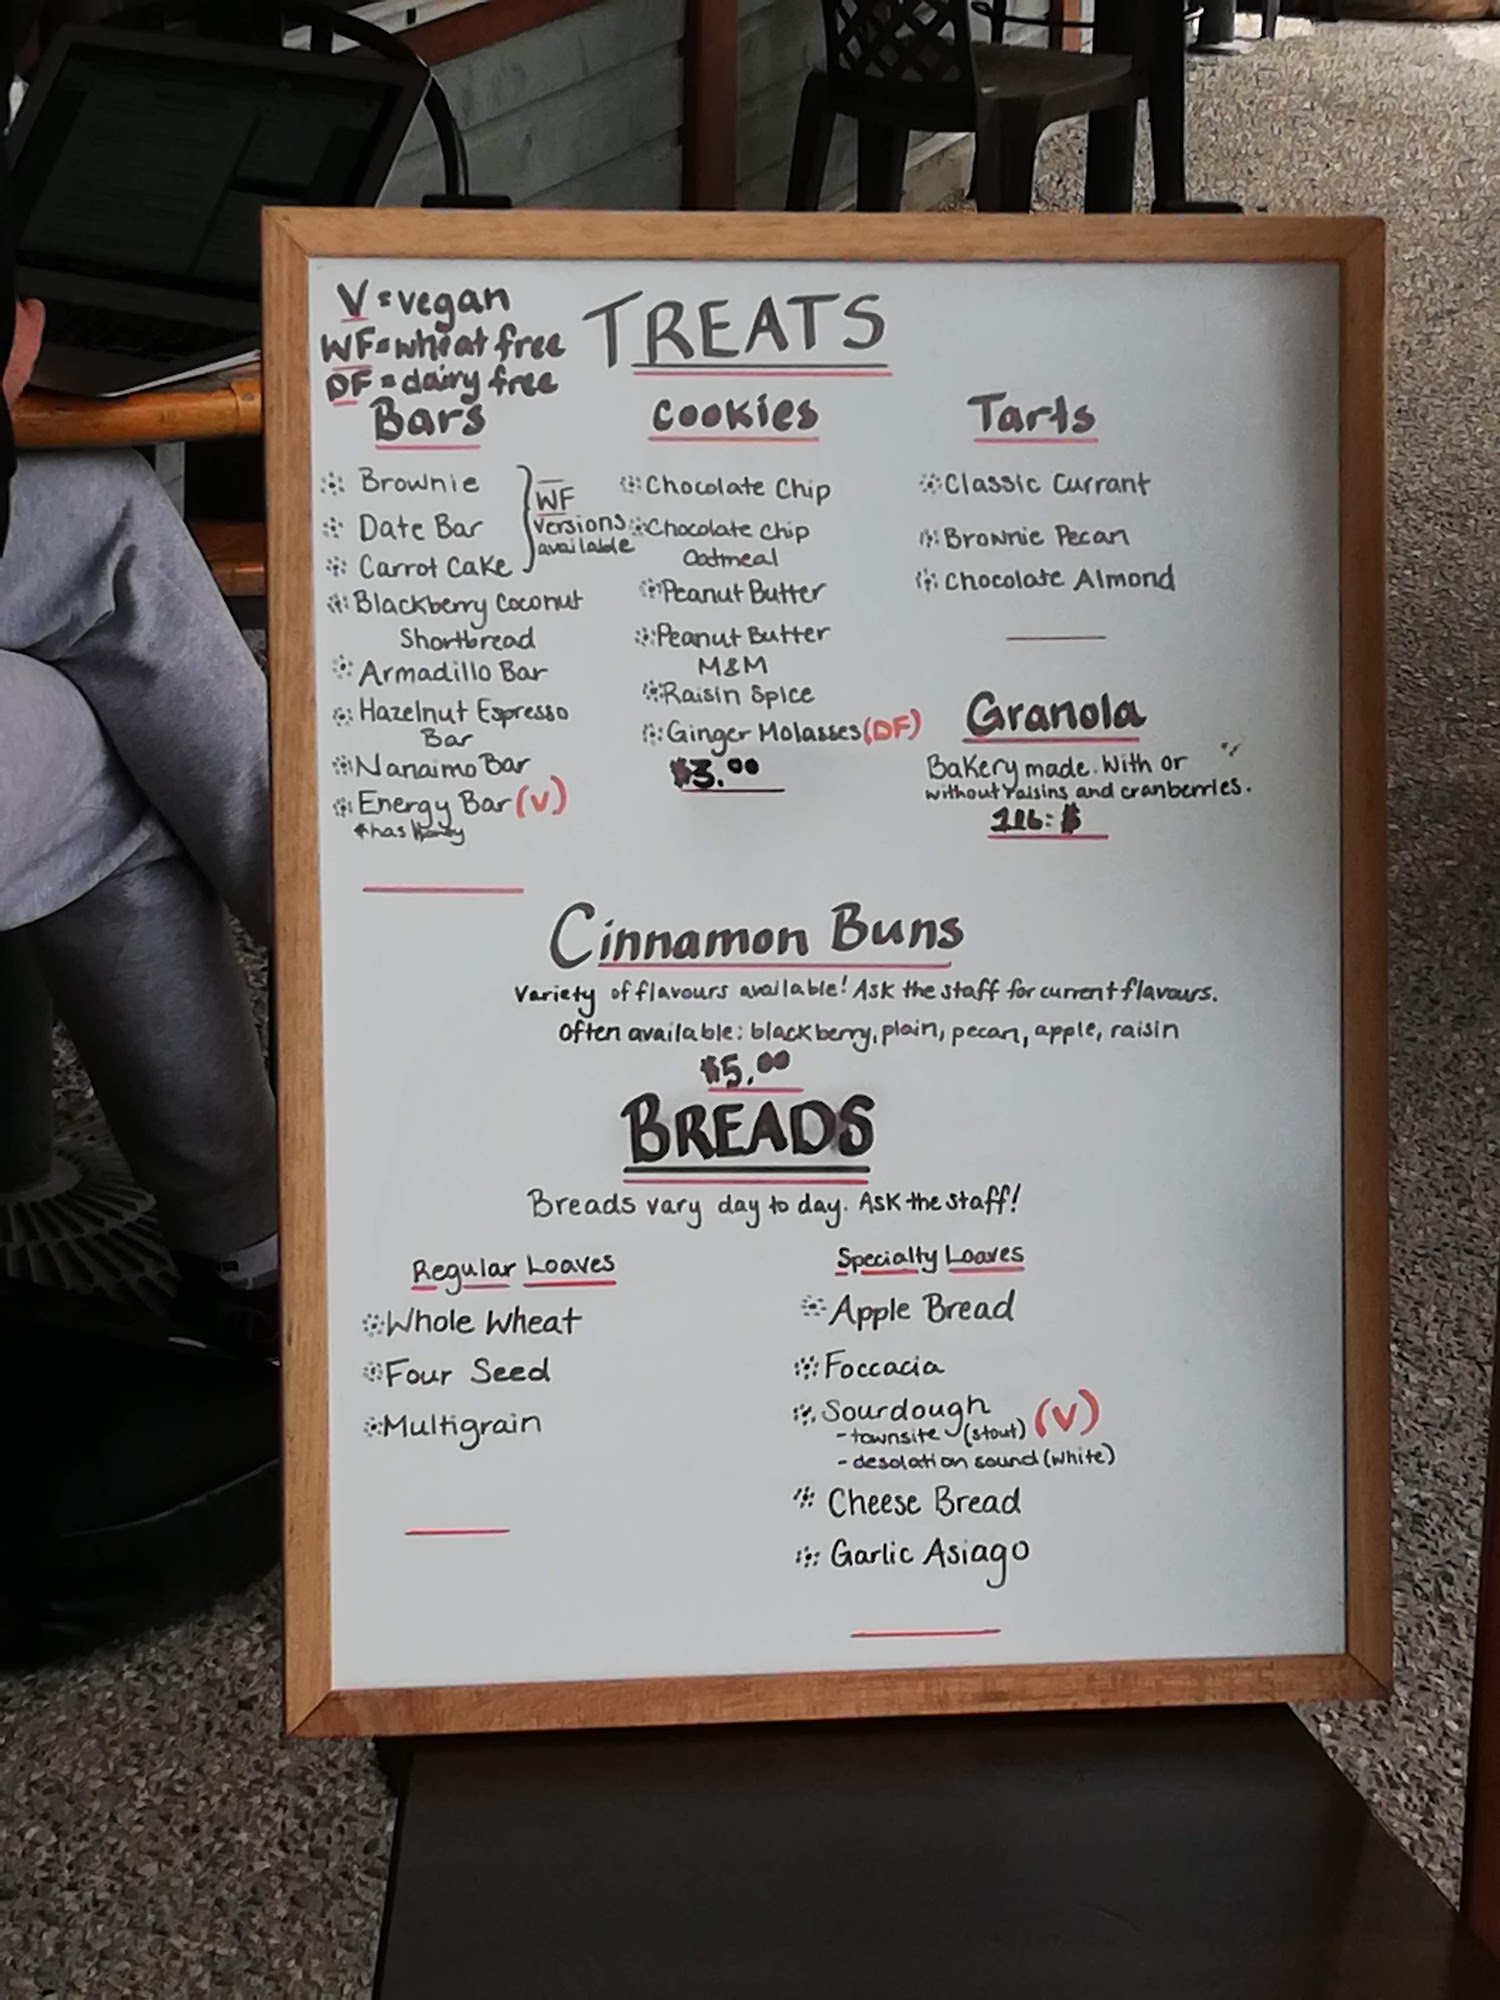 V = vegan
WF = wheat free
DF = dairy free
TREATS
Bars
Brownie
Date Bar
Carrot Cake
WF
versions
available
Blackberry Coconut
Shortbread
Armadillo Bar
Hazelnut Espresso
Bar
Nanaimo Bar
Energy Bar (V)
*has honey
Cookies
Chocolate Chip
Chocolate Chip
Oatmeal
Peanut Butter
Peanut Butter
M&M
Raisin Spice
Ginger Molasses (DF)
$3.00
Tarts
Classic Currant
Brownie Pecan
Chocolate Almond
Granola
Bakery made. With or
without raisins and cranberries.
1lb: $
Cinnamon Buns
Variety of flavours available! Ask the staff for current flavours.
Often available: blackberry, plain, pecan, apple, raisin
$5.00
BREADS
Breads vary day to day. Ask the staff!
Regular Loaves
Whole Wheat
Four Seed
Multigrain
Specialty Loaves
Apple Bread
Foccacia
Sourdough (V)
- townsite (stout)
- desolation sound (white)
Cheese Bread
Garlic Asiago